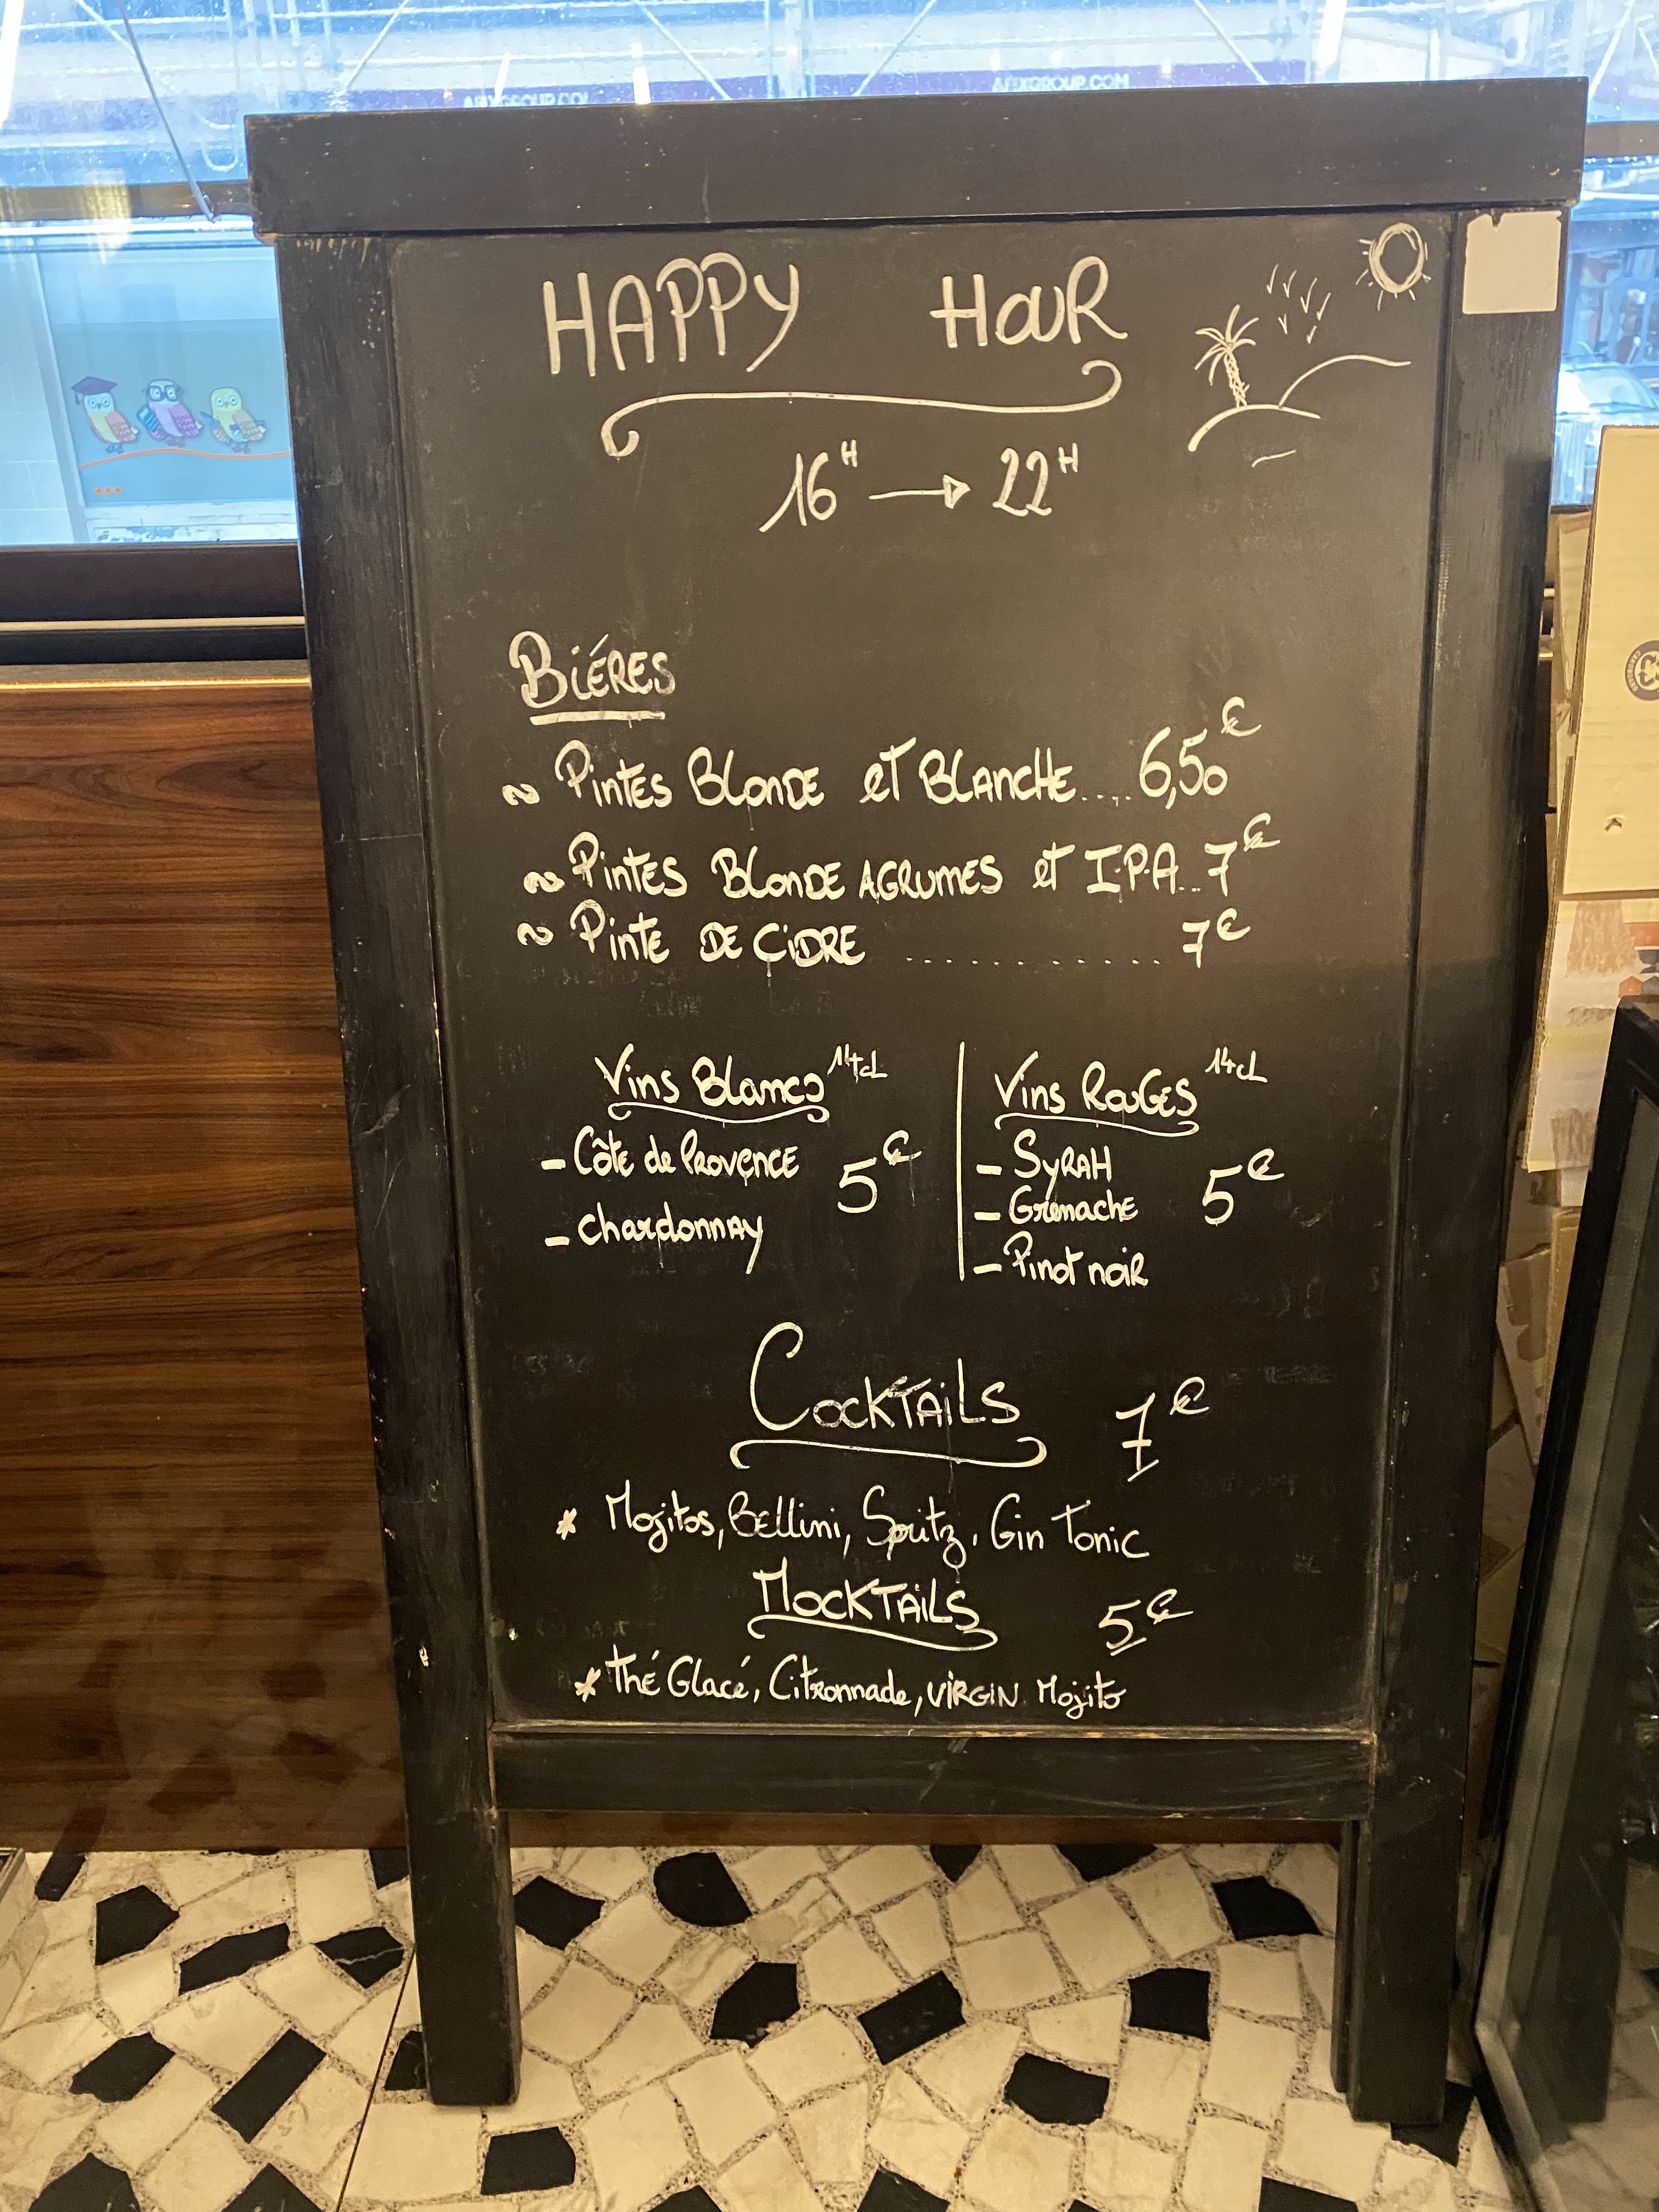 ABXGROUP.COM
HAPPY HOUR
16H → 22H
BIÉRES
~ PINTES BLONDE et BLANCHE.... 6,50€
~ PINTES BLONDE AGRUMES et I.P.A... 7€
~ PINTE DE CIDRE ............ 7€
Vins Blancs 14cL
- Côte de PROVENCE 5€
- Chardonnay
Vins ROUGES 14cL
- SYRAH
- Grenache 5€
- Pinot noir
COCKTAILS 7€
* Mojitos, Bellini, Spritz, Gin Tonic
MOCKTAILS 5€
* Thé Glacé, Citronnade, VIRGIN Mojito